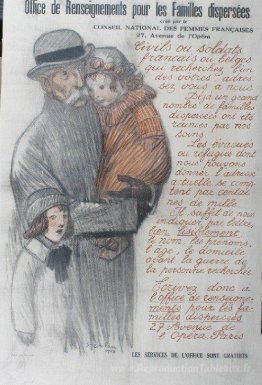 Office de Renseignements pour les Familles dispersées
créé par le
CONSEIL NATIONAL DES FEMMES FRANÇAISES
27, Avenue de l'Opéra
Civils ou soldats
français ou belges
qui recherchez l'un
des vôtres, adres
sez vous à nous
Déjà un grand
nombre de familles
dispersées ont été
réunies par nos
soins.
Les évacués
ou réfugiés dont
nous pouvons
donner l'adres
actuelle se comp
tent par centai
nes de mille
Il suffit de nous
indiquer par lettre,
bien lisiblement
le nom, les prénoms,
l'age, le domicile
avant la guerre de
la personne recherchée
Ecrivez donc à
l'office de renseigne-
ments pour les fa-
milles dispersées
27 Avenue de
l'Opéra Paris
LES SERVICES DE L'OFFICE SONT GRATUITS